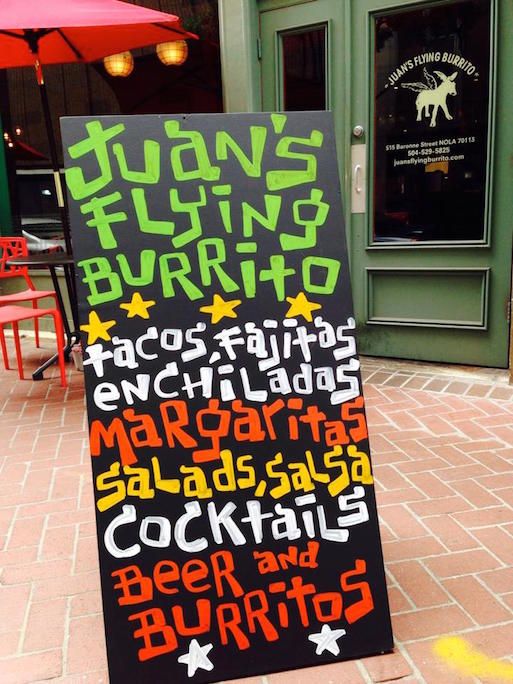 JUAN'S
FLYING
BURRITO
tacos, fajitas
ENCHILADAS
MARGARITAS
SALADS, SALSA
COCKTAILS
BEER and
BURRITOS
JUAN'S FLYING BURRITO
515 Baronne Street NOLA 70113
504-529-5825
juansflyingburrito.com